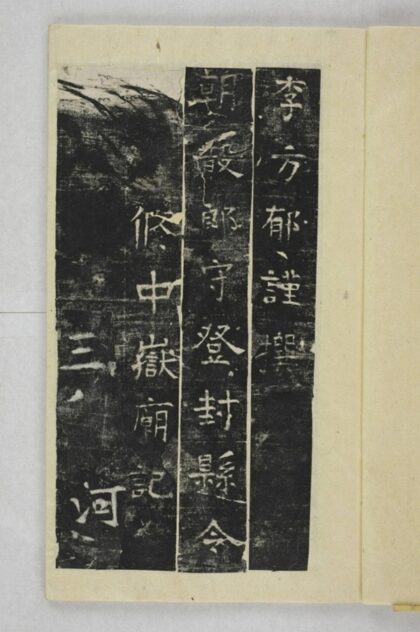 李方郁謹撰
朝散郎守登封縣令
修中嶽廟記
三河